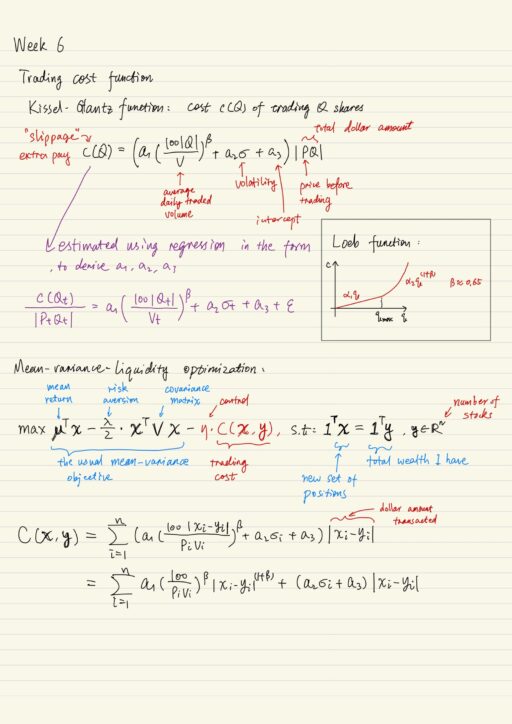 Week 6
Trading cost function
Kissel-Glantz function: cost c(Q) of trading Q shares
"slippage"
extra pay
total dollar amount
C(Q) = (a₁(100|Q|/V)^β + a₂σ + a₃)|PQ|
average
daily traded
volume
volatility
intercept
price before
trading
estimated using regression in the form
to derive a₁, a₂, a₃
C(Qt)/|PtQt| = a₁(100|Qt|/Vt)^β + a₂σt + a₃ + ε
Loeb function:
c
α₁q
α₂q^(1+β)
β≈0.65
qmax
q
Mean-variance-liquidity optimization:
mean
return
risk
aversion
covariance
matrix
control
number of
stocks
max μᵀx − λ/2 · xᵀVx − η·C(x,y), s.t: 1ᵀx = 1ᵀy, y∈Rⁿ
the usual mean-variance
objective
trading
cost
new set of
positions
total wealth I have
dollar amount
transacted
C(x,y) = Σ_{i=1}^{n} (a₁(100|xi−yi|/PiVi)^β + a₂σi + a₃)|xi−yi|
= Σ_{i=1}^{n} a₁(100/PiVi)^β |xi−yi|^(1+β) + (a₂σi + a₃)|xi−yi|